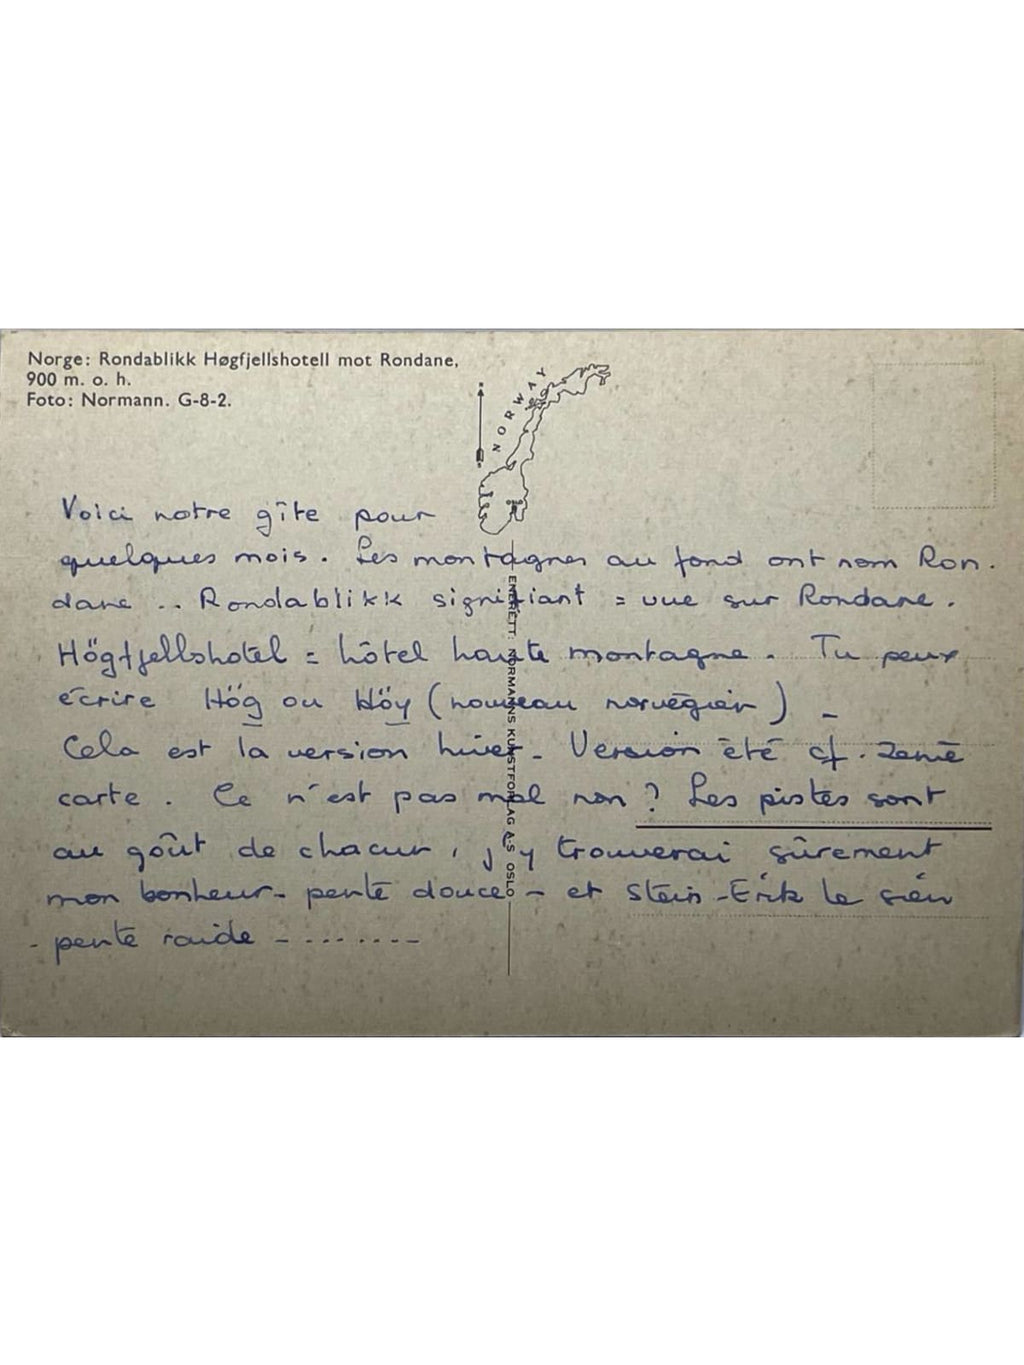 Norge: Rondablikk Høgfjellshotell mot Rondane,
900 m. o. h.
Foto: Normann. G-8-2.
NORWAY
Voici notre gîte pour
quelques mois. Les montagnes au fond ont nom Ron.
dane .. Rondablikk signifiant = vue sur Rondane.
Högfjellshotel = hôtel haute montagne. Tu peux
écrire Hög ou Höy (nouveau norvégien) -
Cela est la version hiver - Version été cf. 2eme
carte. Ce n'est pas mal non? Les pistes sont
au goût de chacun, j'y trouverai sûrement
mon bonheur - pente douce - et Stein-Erik le sien
- pente raide - .......-
ENERETT: NORMANNS KUNSTFORLAG A.S OSLO